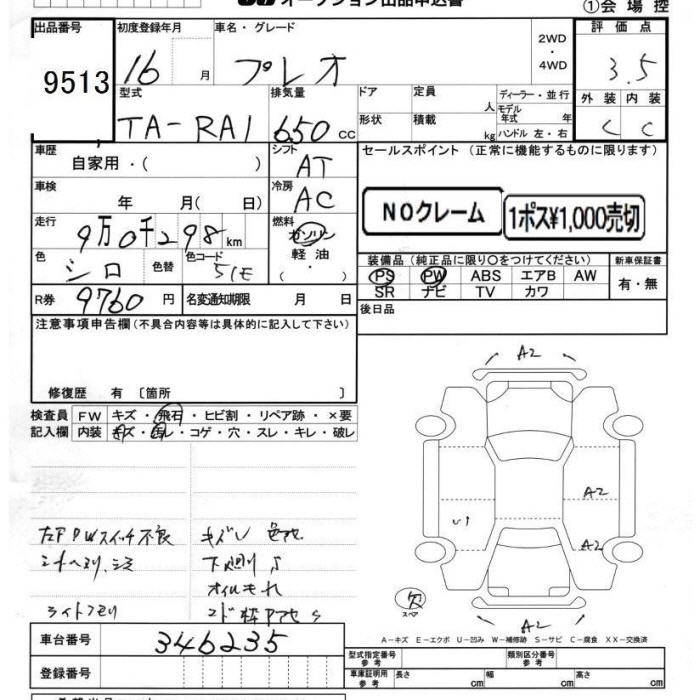 オークション出品申込書
①会場控
出品番号
9513
初度登録年月
16 月
車名・グレード
プレオ
2WD
・
4WD
評価点
3.5
型式
TA-RA1
排気量
650 CC
ドア
定員
人
ディーラー・並行
モデル
年式 年
ハンドル 左・右
形状
積載
kg
外装 内装
C C
車歴
自家用・( )
シフト
AT
セールスポイント (正常に機能するものに限ります)
車検
年 月( 日)
冷房
AC
NOクレーム
1ポス¥1,000売切
走行
9万0千298 km
燃料
ガソリン
軽油
・( )
色
シロ
色替
色コード
51E
装備品 (純正品に限り○をつけてください)
PS PW ABS エアB AW
SR ナビ TV カワ
新車保証書
有・無
R券 9760 円
名変通知期限 月 日
後日品
注意事項申告欄 (不具合内容等は具体的に記入して下さい)
修復歴 有 〔箇所 〕
検査員
記入欄
FW キズ・飛石・ヒビ割・リペア跡・×要
内装 キズ・汚レ・コゲ・穴・スレ・キレ・破レ
左F PWスイッチ不良
キズU
下廻りS
オイルもれ
A2
A2
U1
A2
欠
スペア
A2
A-キズ E-エクボ U-凹み W-補修跡 S-サビ C-腐食 XX-交換済
車台番号 346235
登録番号
型式指定番号
参考
類別区分番号
参考
車庫証明用
参考
長さ cm
幅 cm
高さ cm